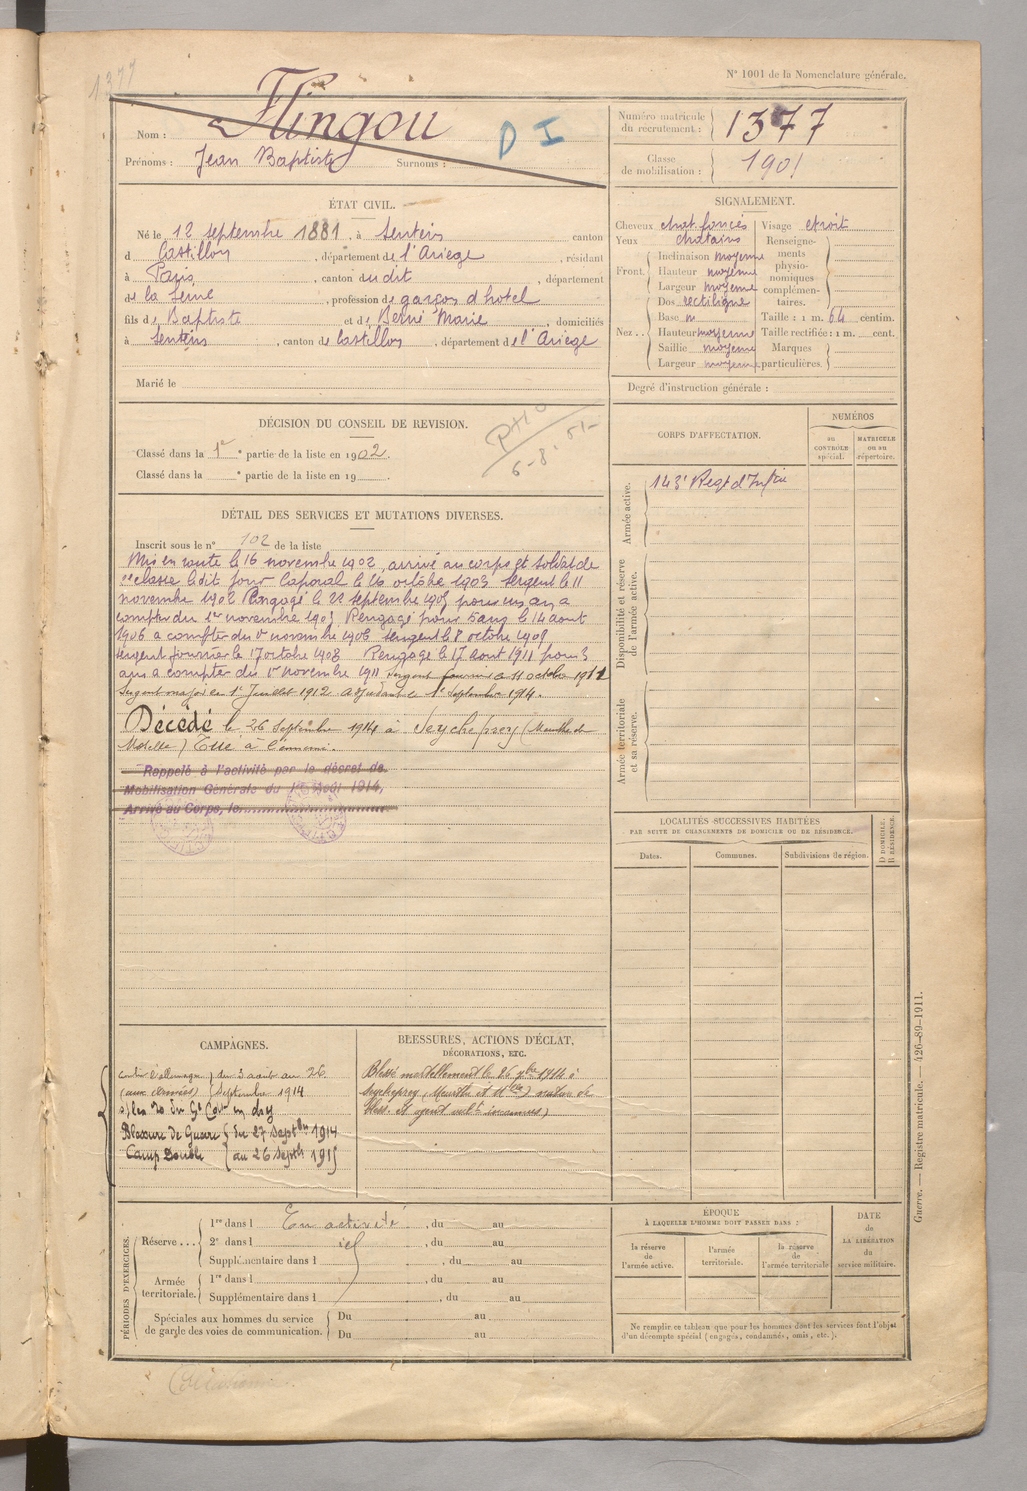 1377
N° 1001 de la Nomenclature générale.
Nom : Flingou
D I
Prénoms : Jean Baptiste Surnoms :
Numéro matricule du recrutement : 1377
Classe de mobilisation : 1901
ÉTAT CIVIL.
Né le 12 septembre 1881, à Sentein canton
d Castillon, département de l'Ariège, résidant
à Paris, canton du dit, département
de la Seine, profession de garçon d'hotel
fils de Baptiste et de Berné Marie, domiciliés
à Sentein, canton de Castillon, département de l'Ariège
Marié le
SIGNALEMENT.
Cheveux chat. foncés
Yeux chatains
Front. Inclinaison moyenne
Hauteur moyenne
Largeur moyenne
Nez .. Dos rectiligne
Base m
Hauteur moyenne
Saillie moyenne
Largeur moyenne
Visage etroit
Renseignements physionomiques complémentaires.
Taille : 1 m. 64 centim.
Taille rectifiée : 1 m. cent.
Marques particulières.
Degré d'instruction générale :
DÉCISION DU CONSEIL DE REVISION.
Classé dans la 1re partie de la liste en 1902.
Classé dans la e partie de la liste en 19 .
6-8-51-
CORPS D'AFFECTATION.
NUMÉROS
au CONTRÔLE spécial.
MATRICULE ou au répertoire.
Armée active.
143e Regt d'Inf
Disponibilité et réserve de l'armée active.
Armée territoriale et sa réserve.
DÉTAIL DES SERVICES ET MUTATIONS DIVERSES.
Inscrit sous le n° 102 de la liste
Mis en route le 16 novembre 1902, arrivé au corps et soldat de
2e classe le dit jour Caporal le octobre 1903 Sergent le 11
novembre 190 Rengagé le 22 septembre 1905 pour un an a
compter du 1er novembre 1905 Rengagé pour 5 ans le 14 aout
1906 a compter du 1er novembre 1906 Sergent le 8 octobre 190
Sergent fourrier le 17 octobre 1908 Rengagé le 17 aout 1911 pour 3
ans a compter du 1er novembre 1911 Sergent fourrier le 11 octobre 1911
Sergent-major le 1er Juillet 1912. Adjudant le 1er Septembre 1914.
Décédé le 26 Septembre 1914 à Seycheprey (Meurthe et
Moselle) Tué à l'ennemi.
Rappelé à l'activité par le décret de
Mobilisation Générale du 1er Août 1914,
Arrivé au Corps, le
LOCALITÉS SUCCESSIVES HABITÉES
PAR SUITE DE CHANGEMENTS DE DOMICILE OU DE RÉSIDENCE.
Dates.
Communes.
Subdivisions de région.
D DOMICILE. R RÉSIDENCE.
CAMPAGNES.
contre l'Allemagne du 3 août au 26
(aux armées) Septembre 1914
Blessure de Guerre du 27 Septbre 1914
Camp Double au 26 Septbre 1915
BLESSURES, ACTIONS D'ÉCLAT,
DÉCORATIONS, ETC.
Blessé mortellement le 26 7bre 1914 à
Seycheprey, (Meurthe et Mlle) nature de
bless. et agent vulnt inconnues)
PÉRIODES D'EXERCICES.
Réserve ... 1re dans l En activité, du au
2e dans l, du au
Supplémentaire dans l, du au
Armée territoriale. 1re dans l, du au
Supplémentaire dans l, du au
Spéciales aux hommes du service de garde des voies de communication. Du au
Du au
ÉPOQUE
À LAQUELLE L'HOMME DOIT PASSER DANS :
la réserve de l'armée active.
l'armée territoriale.
la réserve de l'armée territoriale.
DATE
de
LA LIBÉRATION
du
service militaire.
Ne remplir ce tableau que pour les hommes dont les services font l'objet
d'un décompte spécial (engagés, condamnés, omis, etc.).
Guerre. — Registre matricule. — 426-89-1911.